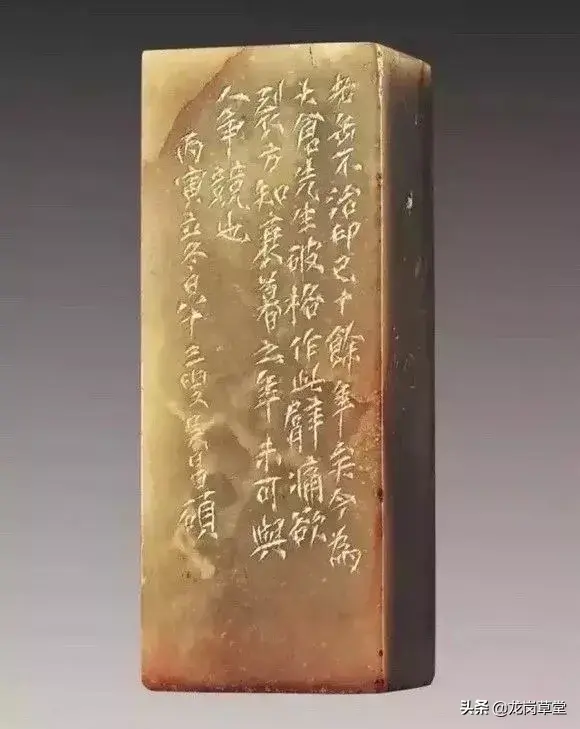 老缶不治印已十餘年矣今為
大倉先生破格作此臂痛欲
裂方知衰暮之年未可與
人爭競也
丙寅立冬日八十三叟吳昌碩
头条 @龙岗草堂